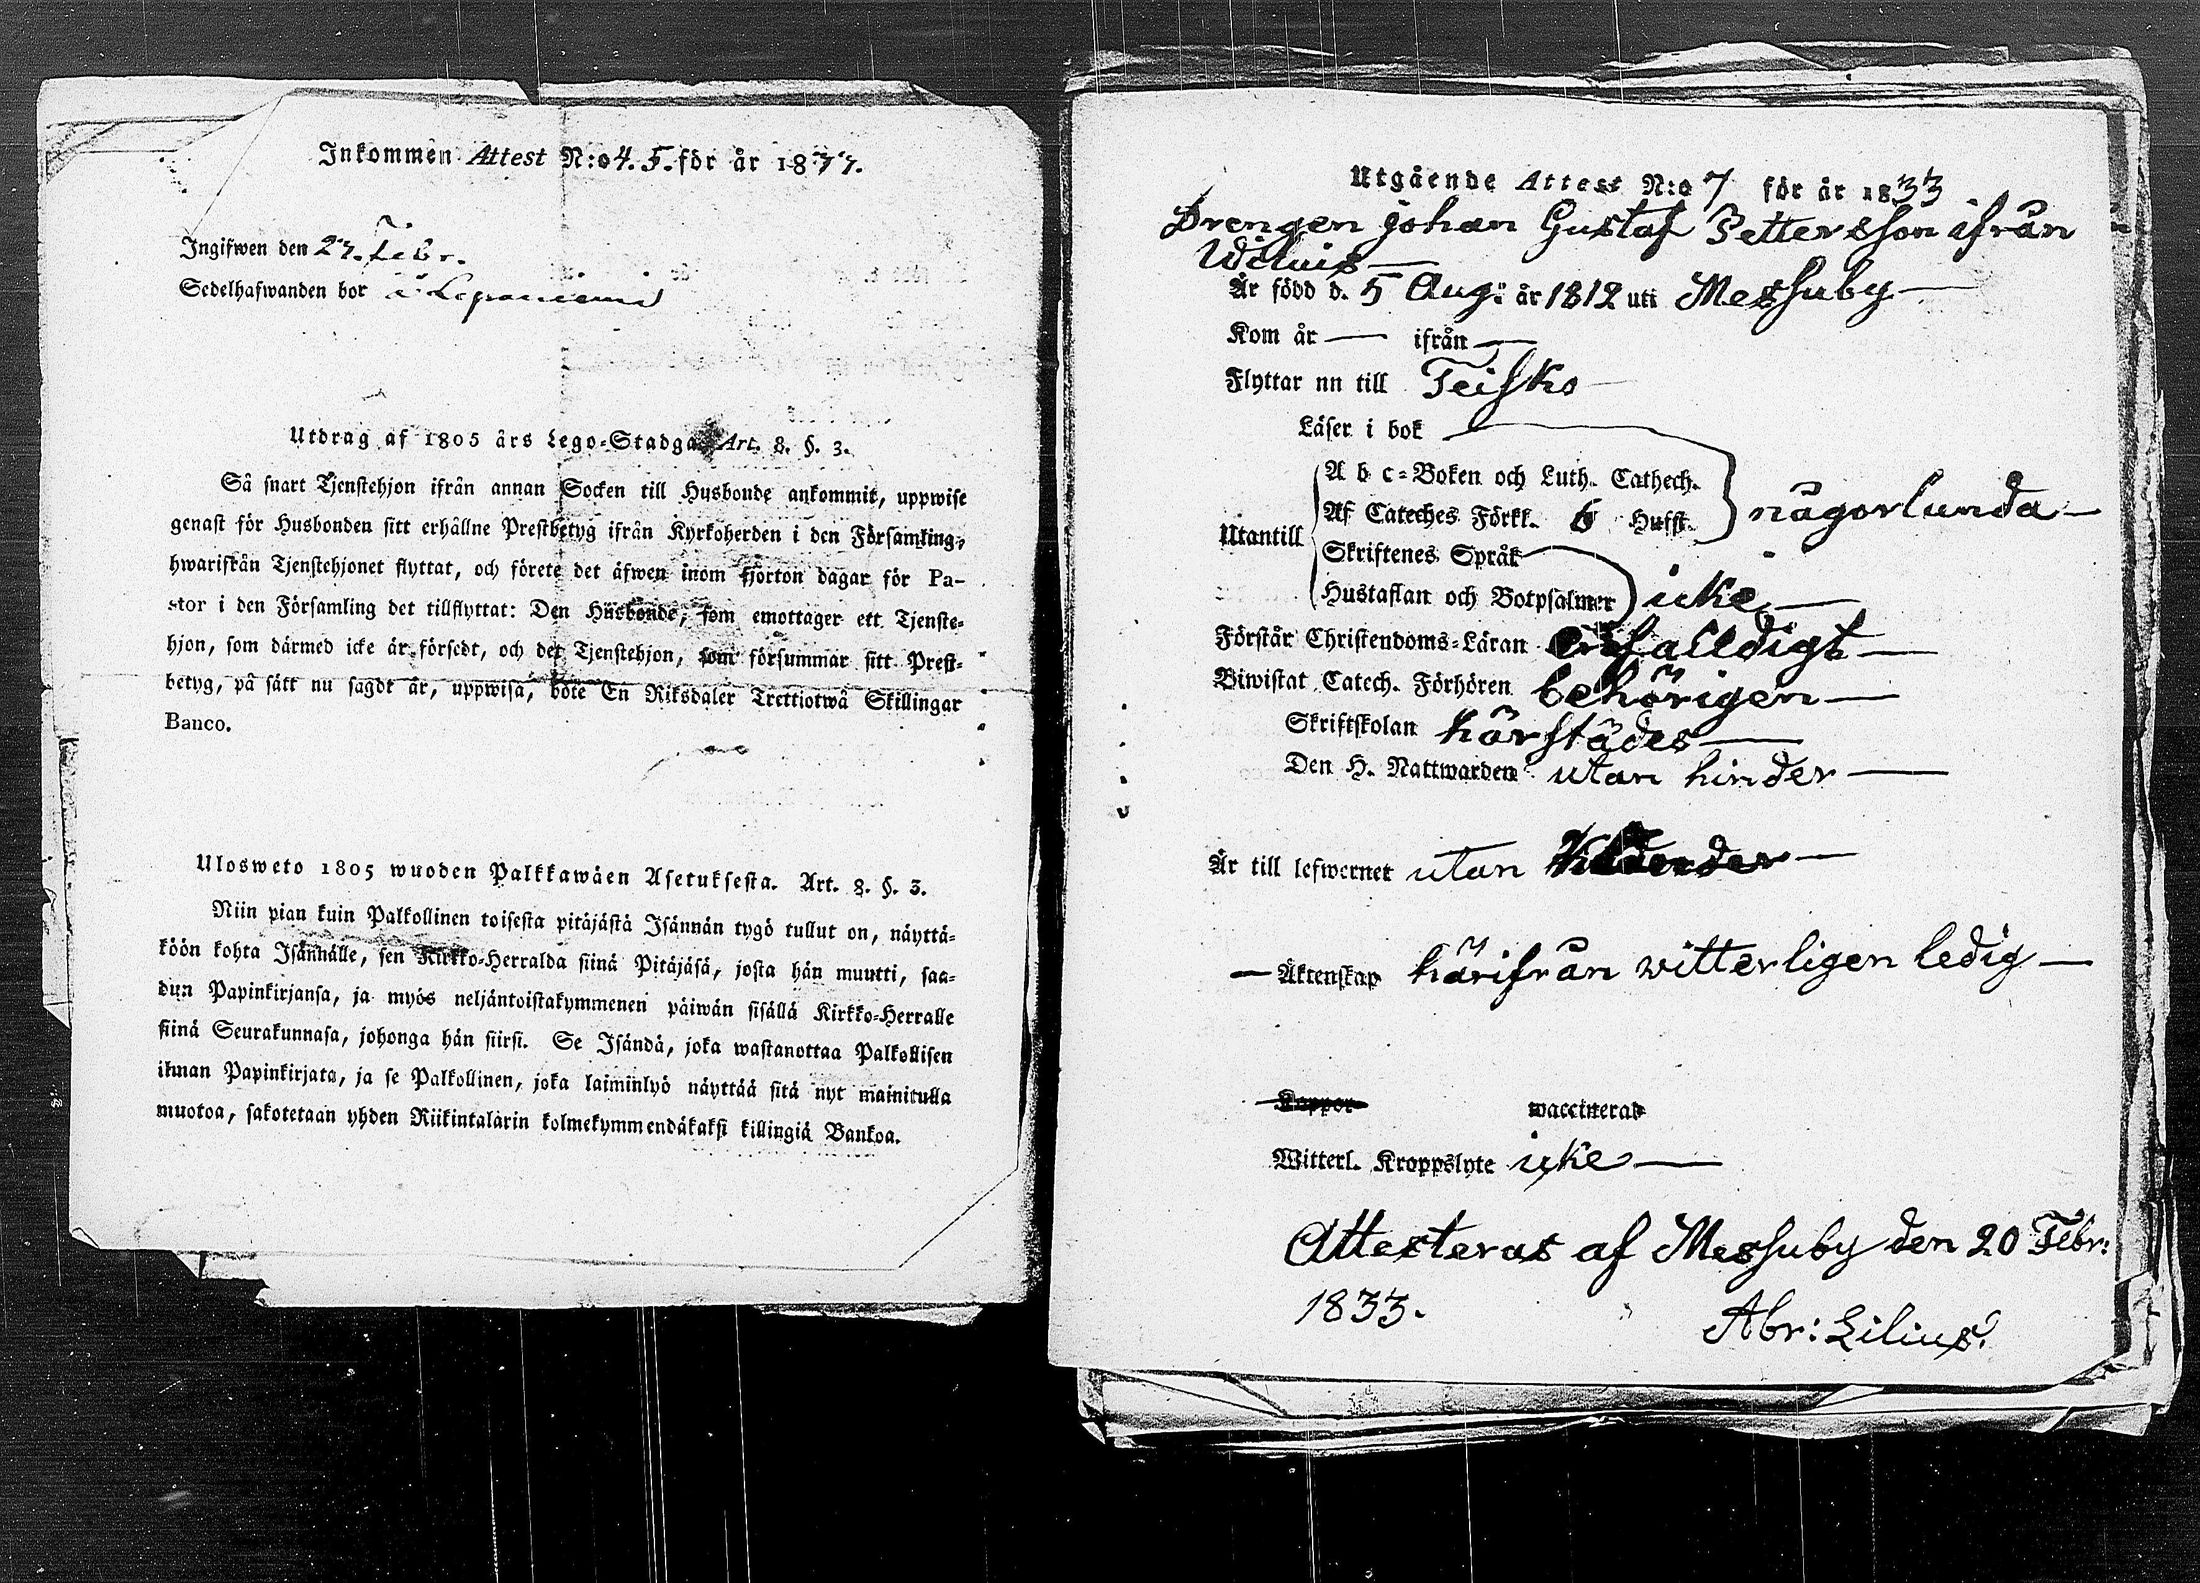 Inkommen Attest N:o 4. 5. för år 1833.
Ingifwen den 27. Febr.
Sedelhafwanden bor å Lepaniemi
Utdrag af 1805 års Lego-Stadga Art. 8. §. 3.
Så snart Tjenstehjon ifrån annan Socken till Husbonde ankommit, uppwise
genast för Husbonden sitt erhållne Prestbetyg ifrån Kyrkoherden i den Församling,
hwarifrån Tjenstehjonet flyttat, och förete det äfwen inom fjorton dagar för Pa-
stor i den Församling det tillflyttat: Den Husbonde, som emottager ett Tjenste-
hjon, som därmed icke är försedt, och det Tjenstehjon, som försummar sitt Prest-
betyg, på sätt nu sagdt är, uppwisa, böte En Riksdaler Trettiotwå Skillingar
Banco.
Ulosweto 1805 wuoden Palkkawäen Asetuksesta. Art. 8. §. 3.
Niin pian kuin Palkollinen toisesta pitäjästä Isännän tygö tullut on, näyttä-
köön kohta Isännälle, sen Kirkko-Herralda siinä Pitäjäsä, josta hän muutti, saa-
dun Papinkirjansa, ja myös neljäntoistakymmenen päiwän sisällä Kirkko-Herralle
siinä Seurakunnasa, johonga hän siirsi. Se Isändä, joka wastanottaa Palkollisen
ilman Papinkirjata, ja se Palkollinen, joka laiminlyö näyttää sitä nyt mainitulla
muotoa, sakotetaan yhden Riikintalarin kolmekymmendäkaksi killingiä Bankoa.
Utgående Attest N:o 7 för år 1833
Drengen Johan Gustaf Pettersson ifrån
Är född d. 5 Aug: år 1812 uti Messuby
Kom år — ifrån —
Flyttar nu till Teisko
Läser i bok
A b c-Boken och Luth. Cathech.
Af Cateches Förkl. 6 Hufst. någorlunda
Utantill
Skriftenes Språk
Hustaflan och Botpsalmer icke
Förstår Christendoms-Läran enfalldigt
Biwistat Catech. Förhören behörigen
Skriftskolan härstädes
Den H. Nattwarden utan hinder
Är till lefwernet utan
— Äktenskap härifrån witterligen ledig
Koppor waccinerad
Witterl. Kroppslyte icke
Attesteras af Messuby den 20 Febr:
1833.
Abr: Lilius.